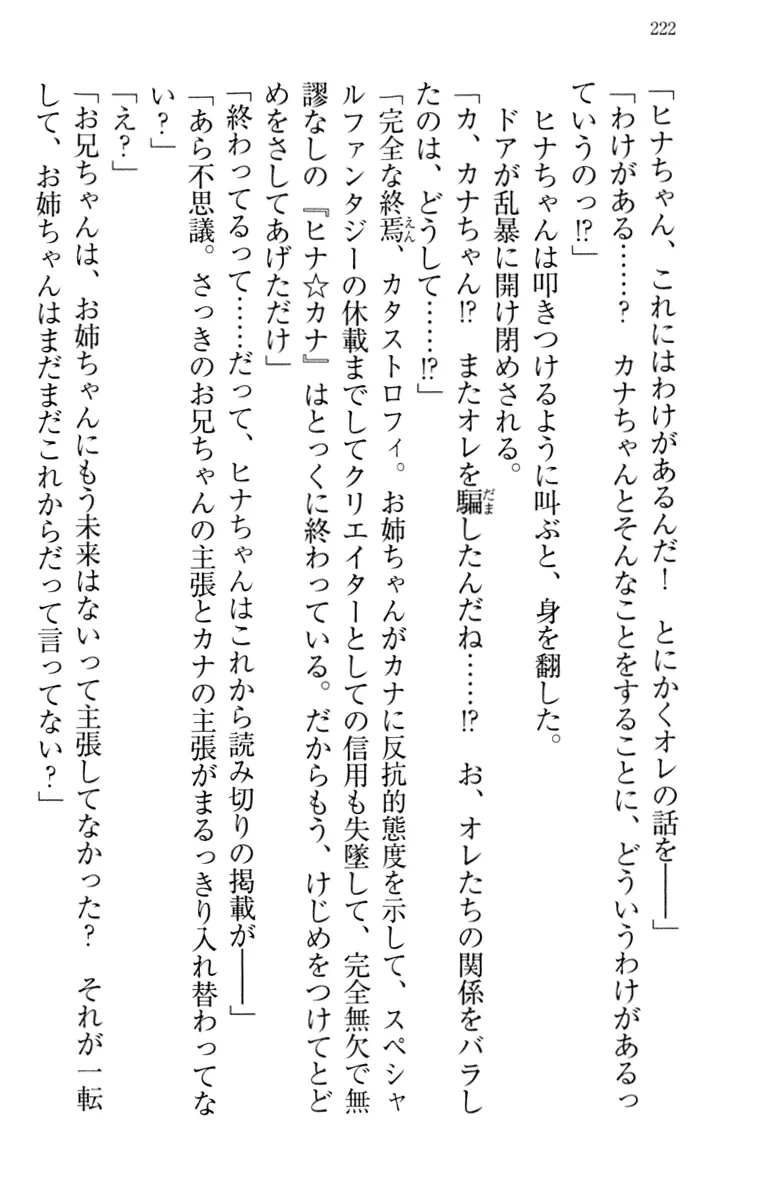 222
「ヒナちゃん、これにはわけがあるんだ！　とにかくオレの話を――」
「わけがある……？　カナちゃんとそんなことをすることに、どういうわけがあるっ
ていうのっ!?」
　ヒナちゃんは叩きつけるように叫ぶと、身を翻した。
　ドアが乱暴に開け閉めされる。
「カ、カナちゃん!?　またオレを騙したんだね……!?　お、オレたちの関係をバラし
だま
たのは、どうして……!?」
「完全な終焉、カタストロフィ。お姉ちゃんがカナに反抗的態度を示して、スペシャ
えん
ルファンタジーの休載までしてクリエイターとしての信用も失墜して、完全無欠で無
謬なしの『ヒナ☆カナ』はとっくに終わっている。だからもう、けじめをつけてとど
めをさしてあげただけ」
「終わってるって……だって、ヒナちゃんはこれから読み切りの掲載が――」
「あら不思議。さっきのお兄ちゃんの主張とカナの主張がまるっきり入れ替わってな
い？」
「え？」
「お兄ちゃんは、お姉ちゃんにもう未来はないって主張してなかった？　それが一転
して、お姉ちゃんはまだまだこれからだって言ってない？」